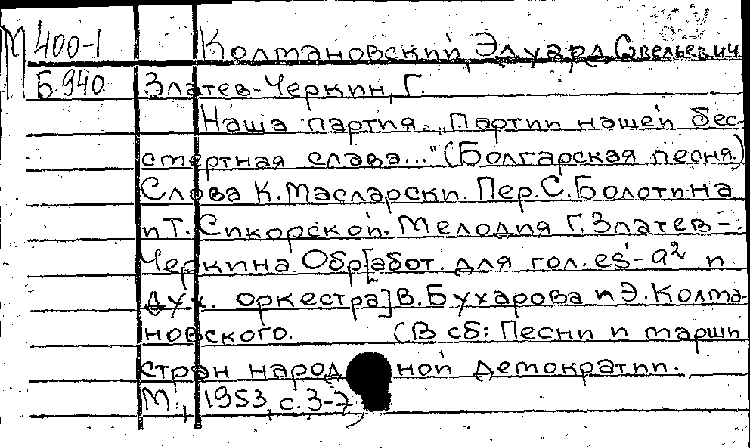 М 400-1 Колмановский, Эдуард Савельевич
Б.940 Златев-Черкин, Г.
Наша партия. „Партии нашей бес-
смертная слава..." (Болгарская песня.)
Слова К. Масларски. Пер. С. Болотина
и Т. Сикорской. Мелодия Г. Златев-
Черкина Обр[абот. для гол. es¹-a² и
дух. оркестра] В. Бухарова и Э. Колма-
новского. (В сб: Песни и марши
стран народной демократии.
М., 1953, с. 3-7)